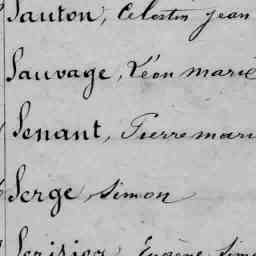 Sauton, Celestin Jean
Sauvage, Léon Marie
Senant, Pierre Mari
Serge, Simon
Eugène Sim